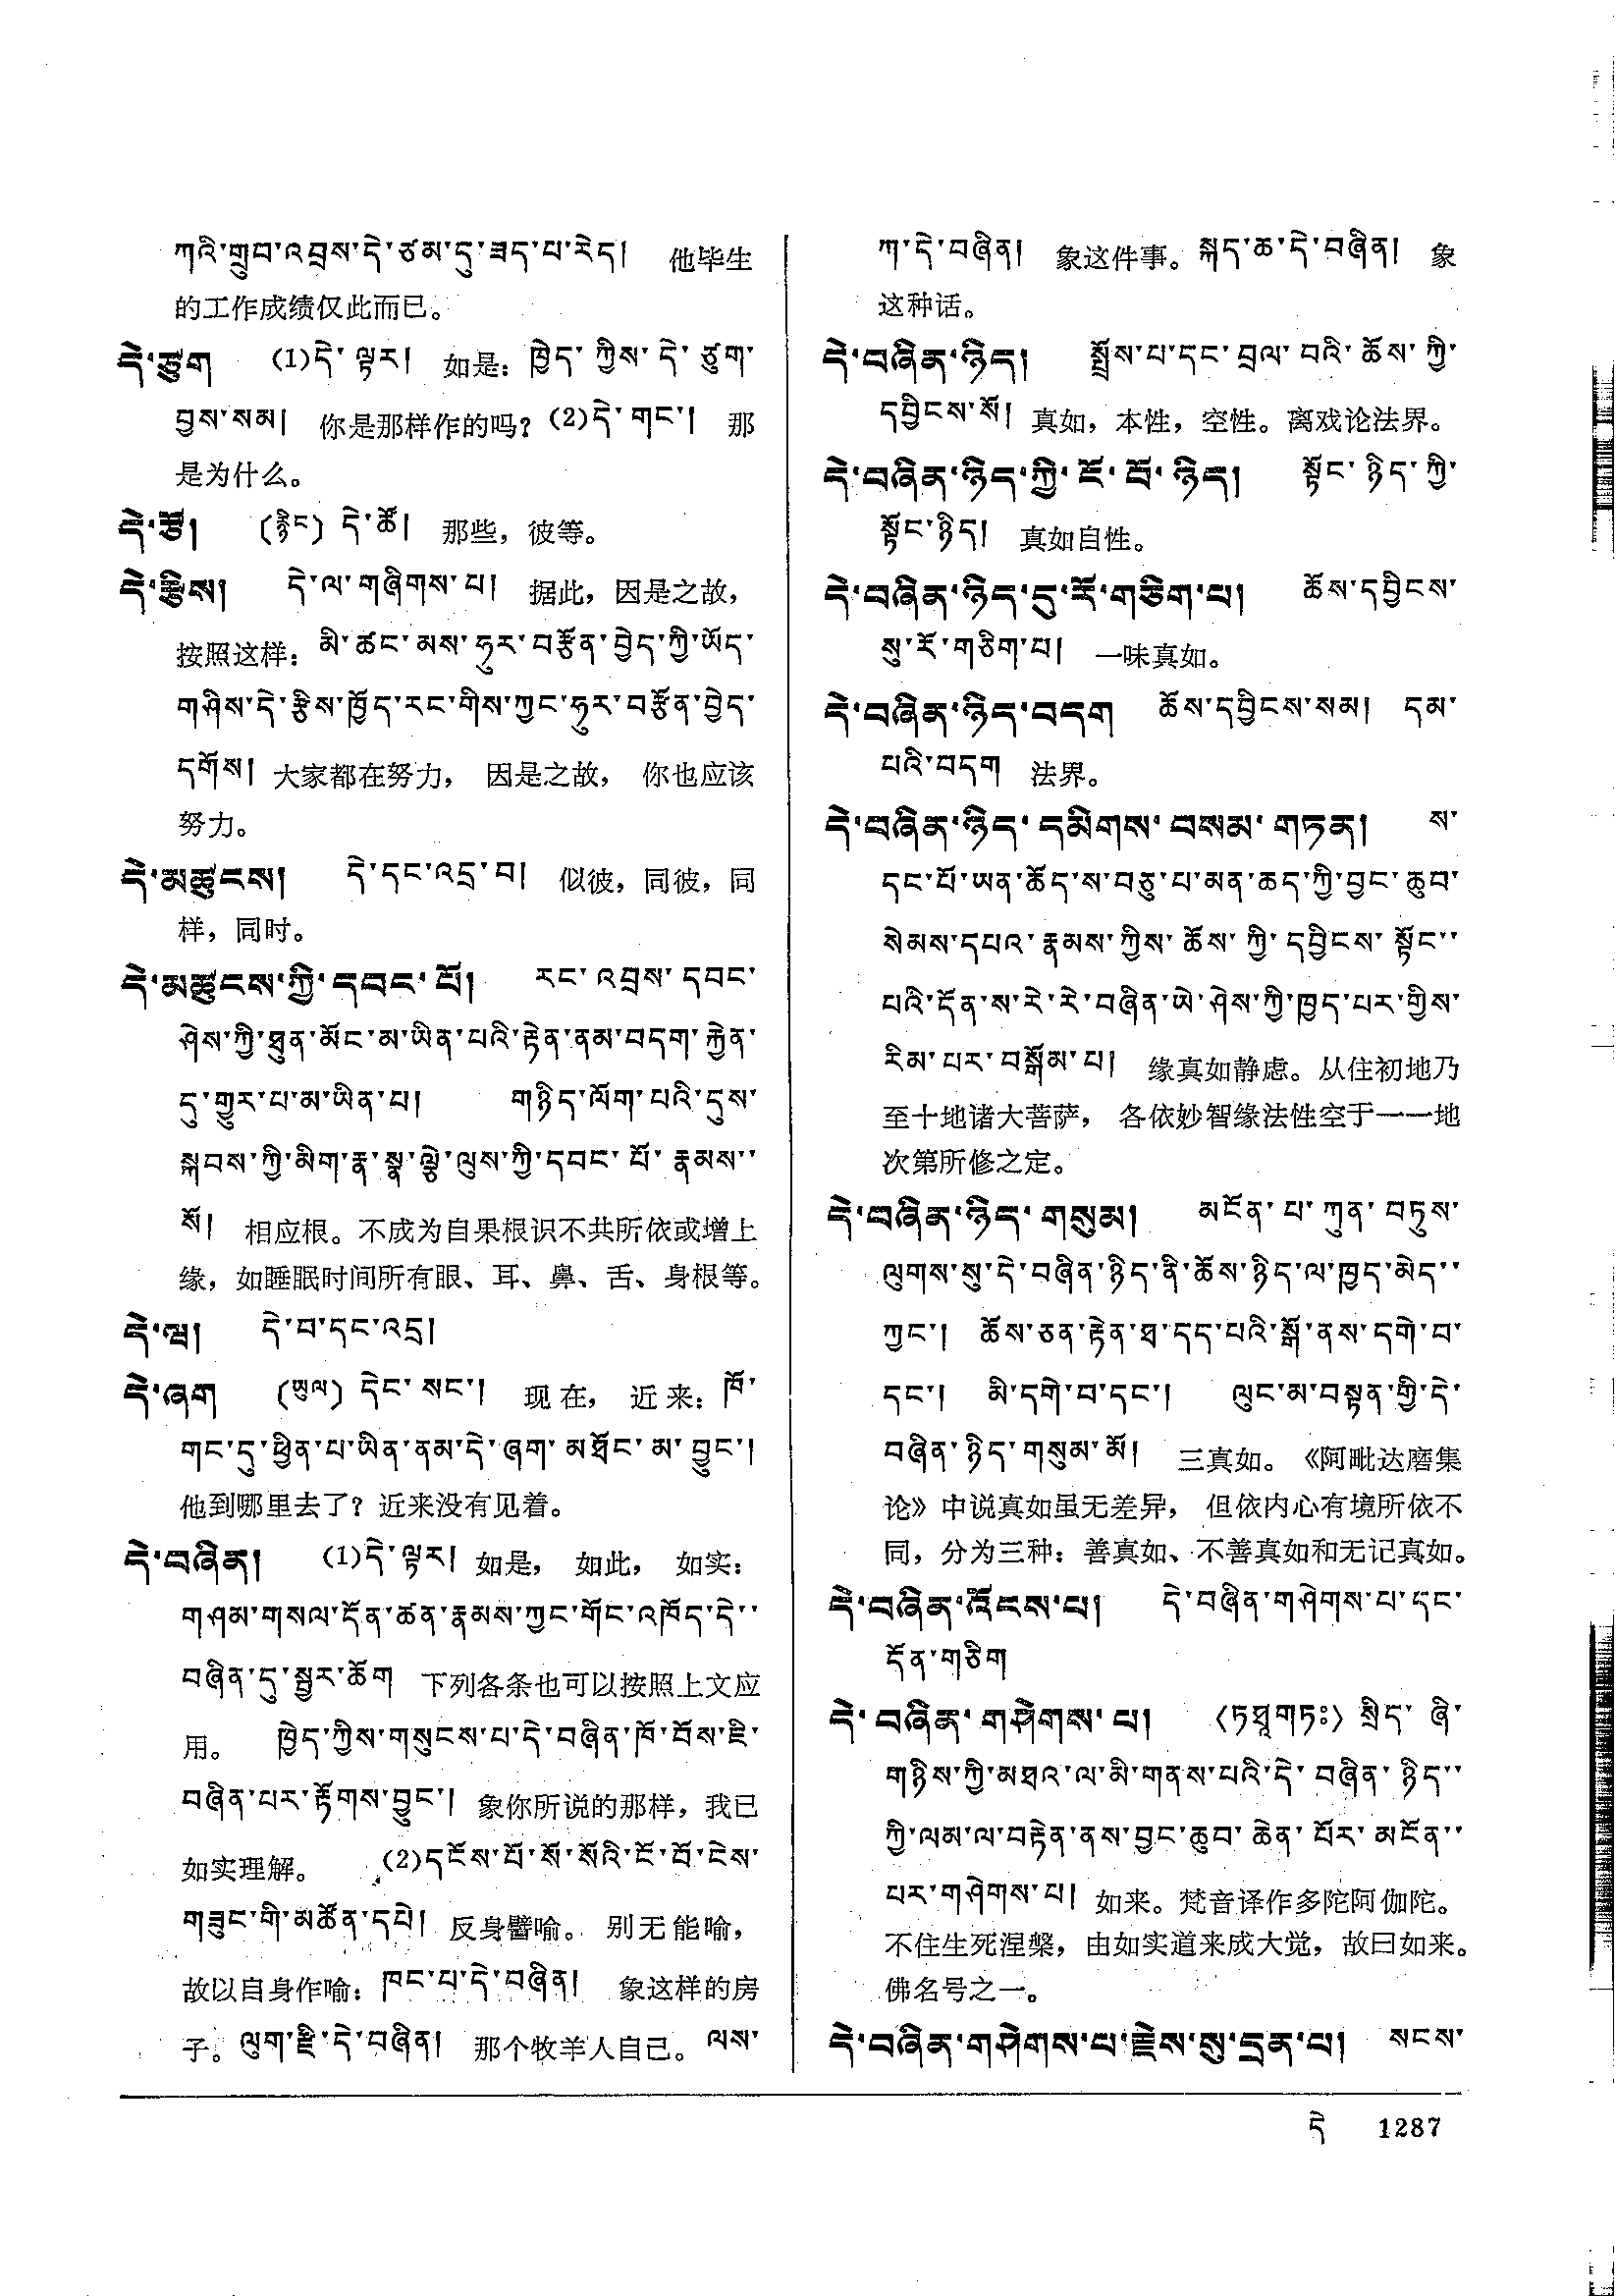 ཀའི་གྲུབ་འབྲས་དེ་ཙམ་དུ་ཟད་པ་རེད། 他毕生
的工作成绩仅此而已。
དེ་ཙུག (1)དེ་ལྟར། 如是：ཁྱེད་ཀྱིས་དེ་ཙུག་
བྱས་སམ། 你是那样作的吗？(2)དེ་གང་། 那
是为什么。
དེ་ཙོ། (རྙིང) དེ་ཚོ། 那些，彼等。
དེ་རྩིས། དེ་ལ་གཞིགས་པ། 据此，因是之故，
按照这样：མི་ཚང་མས་ཧུར་བརྩོན་བྱེད་ཀྱི་ཡོད་
གཤིས་དེ་རྩིས་ཁྱོད་རང་གིས་ཀྱང་ཧུར་བརྩོན་བྱེད་
དགོས། 大家都在努力， 因是之故， 你也应该
努力。
དེ་མཚུངས། དེ་དང་འདྲ་བ། 似彼，同彼，同
样，同时。
དེ་མཚུངས་ཀྱི་དབང་པོ། རང་འབྲས་དབང་
ཤེས་ཀྱི་ཐུན་མོང་མ་ཡིན་པའི་རྟེན་ནམ་བདག་རྐྱེན་
དུ་གྱུར་པ་མ་ཡིན་པ། གཉིད་ལོག་པའི་དུས་
སྐབས་ཀྱི་མིག་རྣ་སྣ་ལྕེ་ལུས་ཀྱི་དབང་པོ་རྣམས་་
སོ། 相应根。不成为自果根识不共所依或增上
缘，如睡眠时间所有眼、耳、鼻、舌、身根等。
དེ་ཝ། དེ་བ་དང་འདྲ།
དེ་ཞག (ཡུལ) དེང་སང་། 现在， 近来：ཁོ་
གང་དུ་ཕྱིན་པ་ཡིན་ནམ་དེ་ཞག་མཐོང་མ་བྱུང་།
他到哪里去了？近来没有见着。
དེ་བཞིན། (1)དེ་ལྟར། 如是， 如此， 如实：
གཤམ་གསལ་དོན་ཚན་རྣམས་ཀྱང་གོང་འཁོད་དེ་་
བཞིན་དུ་སྦྱར་ཆོག 下列各条也可以按照上文应
用。 ཁྱེད་ཀྱིས་གསུངས་པ་དེ་བཞིན་ཁོ་བོས་ཇི་
བཞིན་པར་རྟོགས་བྱུང་། 象你所说的那样，我已
如实理解。 (2)དངོས་པོ་སོ་སོའི་ངོ་བོ་ངེས་
གཟུང་གི་མཚོན་དཔེ། 反身譬喻。 别无能喻，
故以自身作喻：ཁང་པ་དེ་བཞིན། 象这样的房
子。ལུག་རྫི་དེ་བཞིན། 那个牧羊人自己。ལས་
ཀ་དེ་བཞིན། 象这件事。སྐད་ཆ་དེ་བཞིན། 象
这种话。
དེ་བཞིན་ཉིད། སྤྲོས་པ་དང་བྲལ་བའི་ཆོས་ཀྱི་
དབྱིངས་སོ། 真如，本性，空性。离戏论法界。
དེ་བཞིན་ཉིད་ཀྱི་ངོ་བོ་ཉིད། སྟོང་ཉིད་ཀྱི་
སྟོང་ཉིད། 真如自性。
དེ་བཞིན་ཉིད་དུ་རོ་གཅིག་པ། ཆོས་དབྱིངས་
སུ་རོ་གཅིག་པ། 一味真如。
དེ་བཞིན་ཉིད་བདག ཆོས་དབྱིངས་སམ། དམ་
པའི་བདག 法界。
དེ་བཞིན་ཉིད་དམིགས་བསམ་གཏན། ས་
དང་པོ་ཡན་ཆོད་ས་བཅུ་པ་མན་ཆད་ཀྱི་བྱང་ཆུབ་
སེམས་དཔའ་རྣམས་ཀྱིས་ཆོས་ཀྱི་དབྱིངས་སྟོང་་
པའི་དོན་ས་རེ་རེ་བཞིན་ཡེ་ཤེས་ཀྱི་ཁྱད་པར་གྱིས་
རིམ་པར་བསྒོམ་པ། 缘真如静虑。从住初地乃
至十地诸大菩萨， 各依妙智缘法性空于一一地
次第所修之定。
དེ་བཞིན་ཉིད་གསུམ། མངོན་པ་ཀུན་བཏུས་
ལུགས་སུ་དེ་བཞིན་ཉིད་ནི་ཆོས་ཉིད་ལ་ཁྱད་མེད་་
ཀྱང་། ཆོས་ཅན་རྟེན་ཐ་དད་པའི་སྒོ་ནས་དགེ་བ་
དང་། མི་དགེ་བ་དང་། ལུང་མ་བསྟན་གྱི་དེ་
བཞིན་ཉིད་གསུམ་མོ། 三真如。《阿毗达磨集
论》中说真如虽无差异， 但依内心有境所依不
同，分为三种：善真如、不善真如和无记真如。
དེ་བཞིན་འོངས་པ། དེ་བཞིན་གཤེགས་པ་དང་
དོན་གཅིག
དེ་བཞིན་གཤེགས་པ། (ཏཐཱགཏཿ) སྲིད་ཞི་
གཉིས་ཀྱི་མཐའ་ལ་མི་གནས་པའི་དེ་བཞིན་ཉིད་་
ཀྱི་ལམ་ལ་བརྟེན་ནས་བྱང་ཆུབ་ཆེན་པོར་མངོན་་
པར་གཤེགས་པ། 如来。梵音译作多陀阿伽陀。
不住生死涅槃，由如实道来成大觉，故曰如来。
佛名号之一。
དེ་བཞིན་གཤེགས་པ་རྗེས་སུ་དྲན་པ། སངས་
དེ 1287